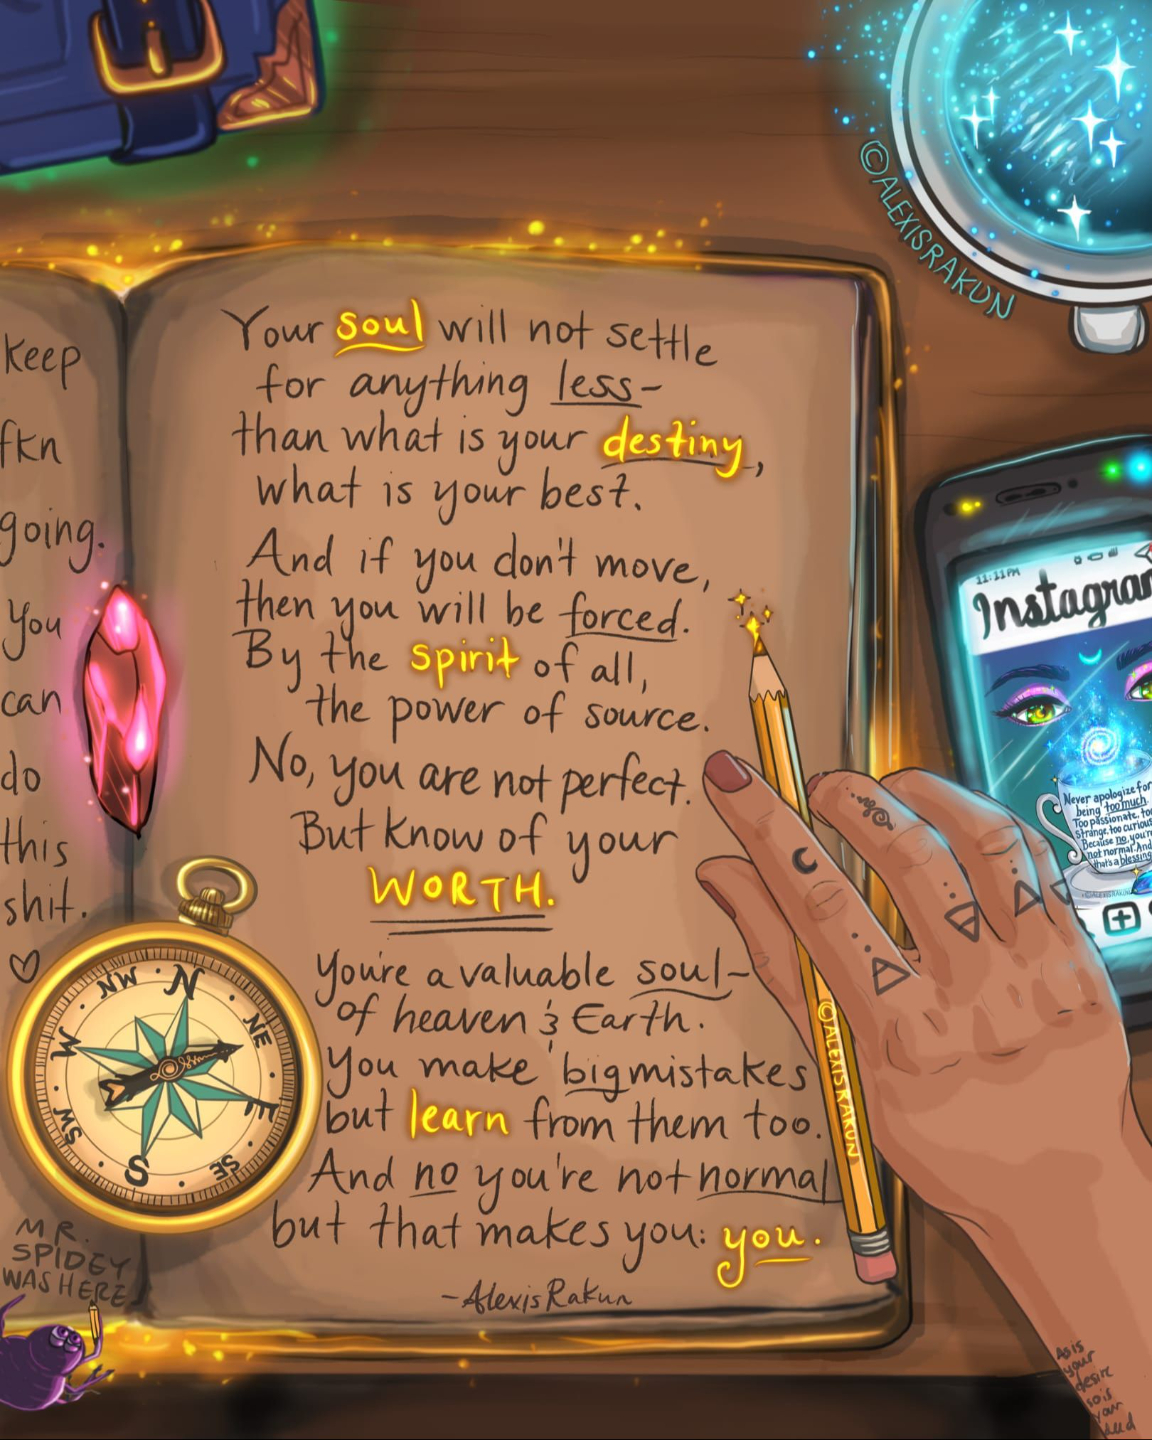 Keep
fkn
going.
You
can
do
this
shit.
Your soul will not settle
for anything less-
than what is your destiny,
what is your best.
And if you don't move,
then you will be forced.
By the spirit of all,
the power of source.
No, you are not perfect.
But know of your
WORTH.
You're a valuable soul-
of heaven & Earth.
You make big mistakes
but learn from them too.
And no you're not normal
but that makes you: you.
-Alexis Rakun
©ALEXISRAKUN
11:11PM
Instagram
Never apologize for
being too much.
Too passionate, too
Strange, too curious
Because no, you're
not normal. And
that's a blessing
©ALEXISRAKUN
©ALEXISRAKUN
N
NE
E
SE
S
SW
W
NW
MR.
SPIDEY
WAS HERE
As is
your
desire
so is
your